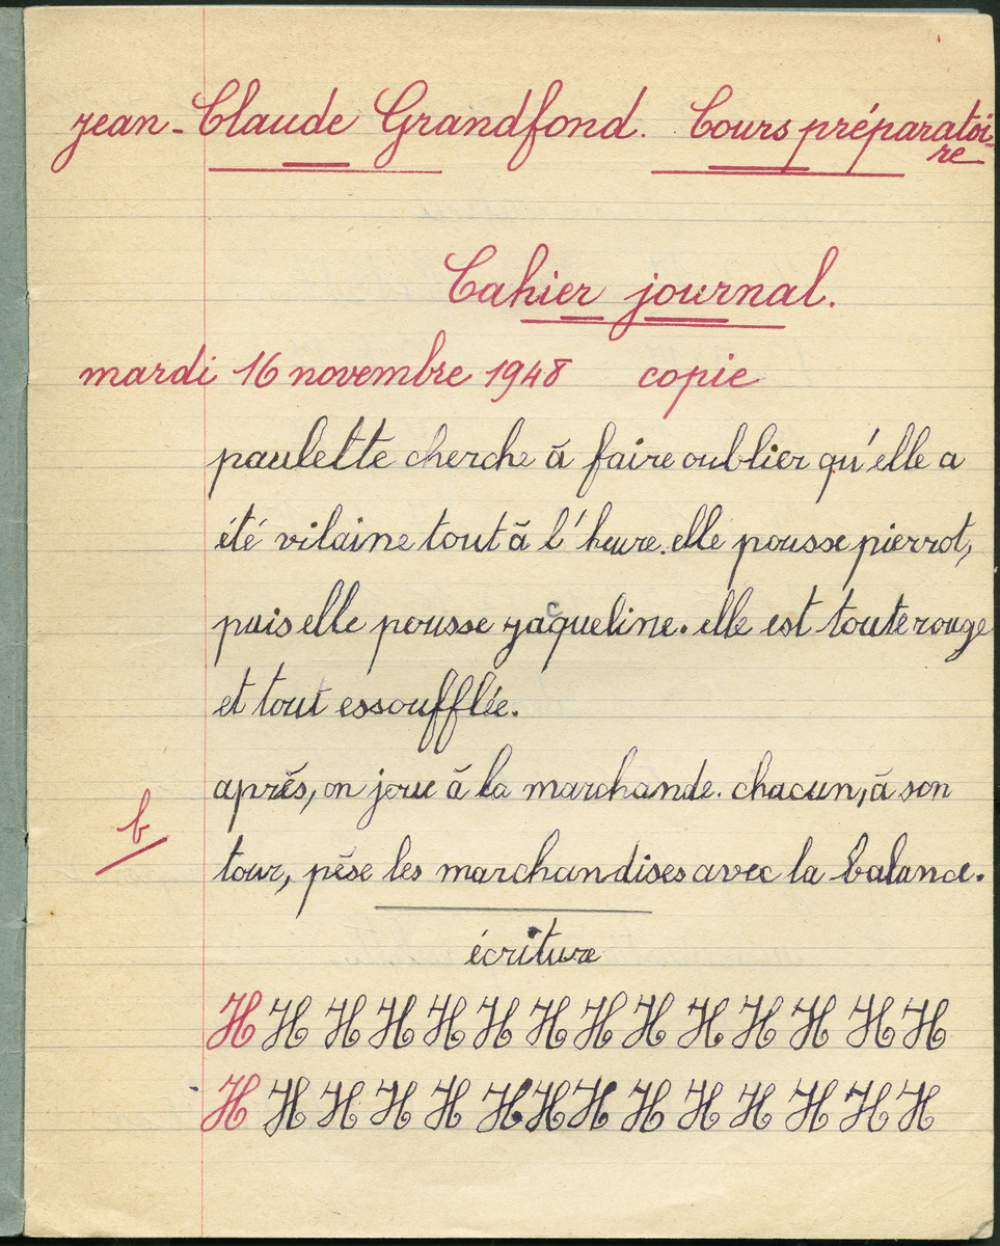 jean-Claude Grandfond. Cours préparatoi-
re
Cahier journal.
mardi 16 novembre 1948 copie
paulette cherche à faire oublier qu'elle a
été vilaine tout à l'heure. elle pousse pierrot,
puis elle pousse jacqueline. elle est toute rouge
et tout essoufflée.
après, on joue à la marchande. chacun, à son
b
tour, pèse les marchandises avec la balance.
écriture
H H H H H H H H H H H H H H
H H H H H H H H H H H H H H